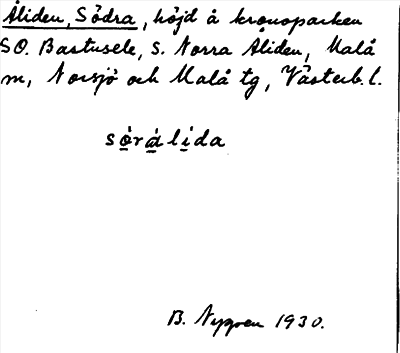 Åliden, Södra, höjd å kronoparken
SO. Bastusele, S. Norra Åliden, Malå
m, Norsjö och Malå tg, Västerb. l.
sọ̀rạ́lịda
B. Nygren 1930.